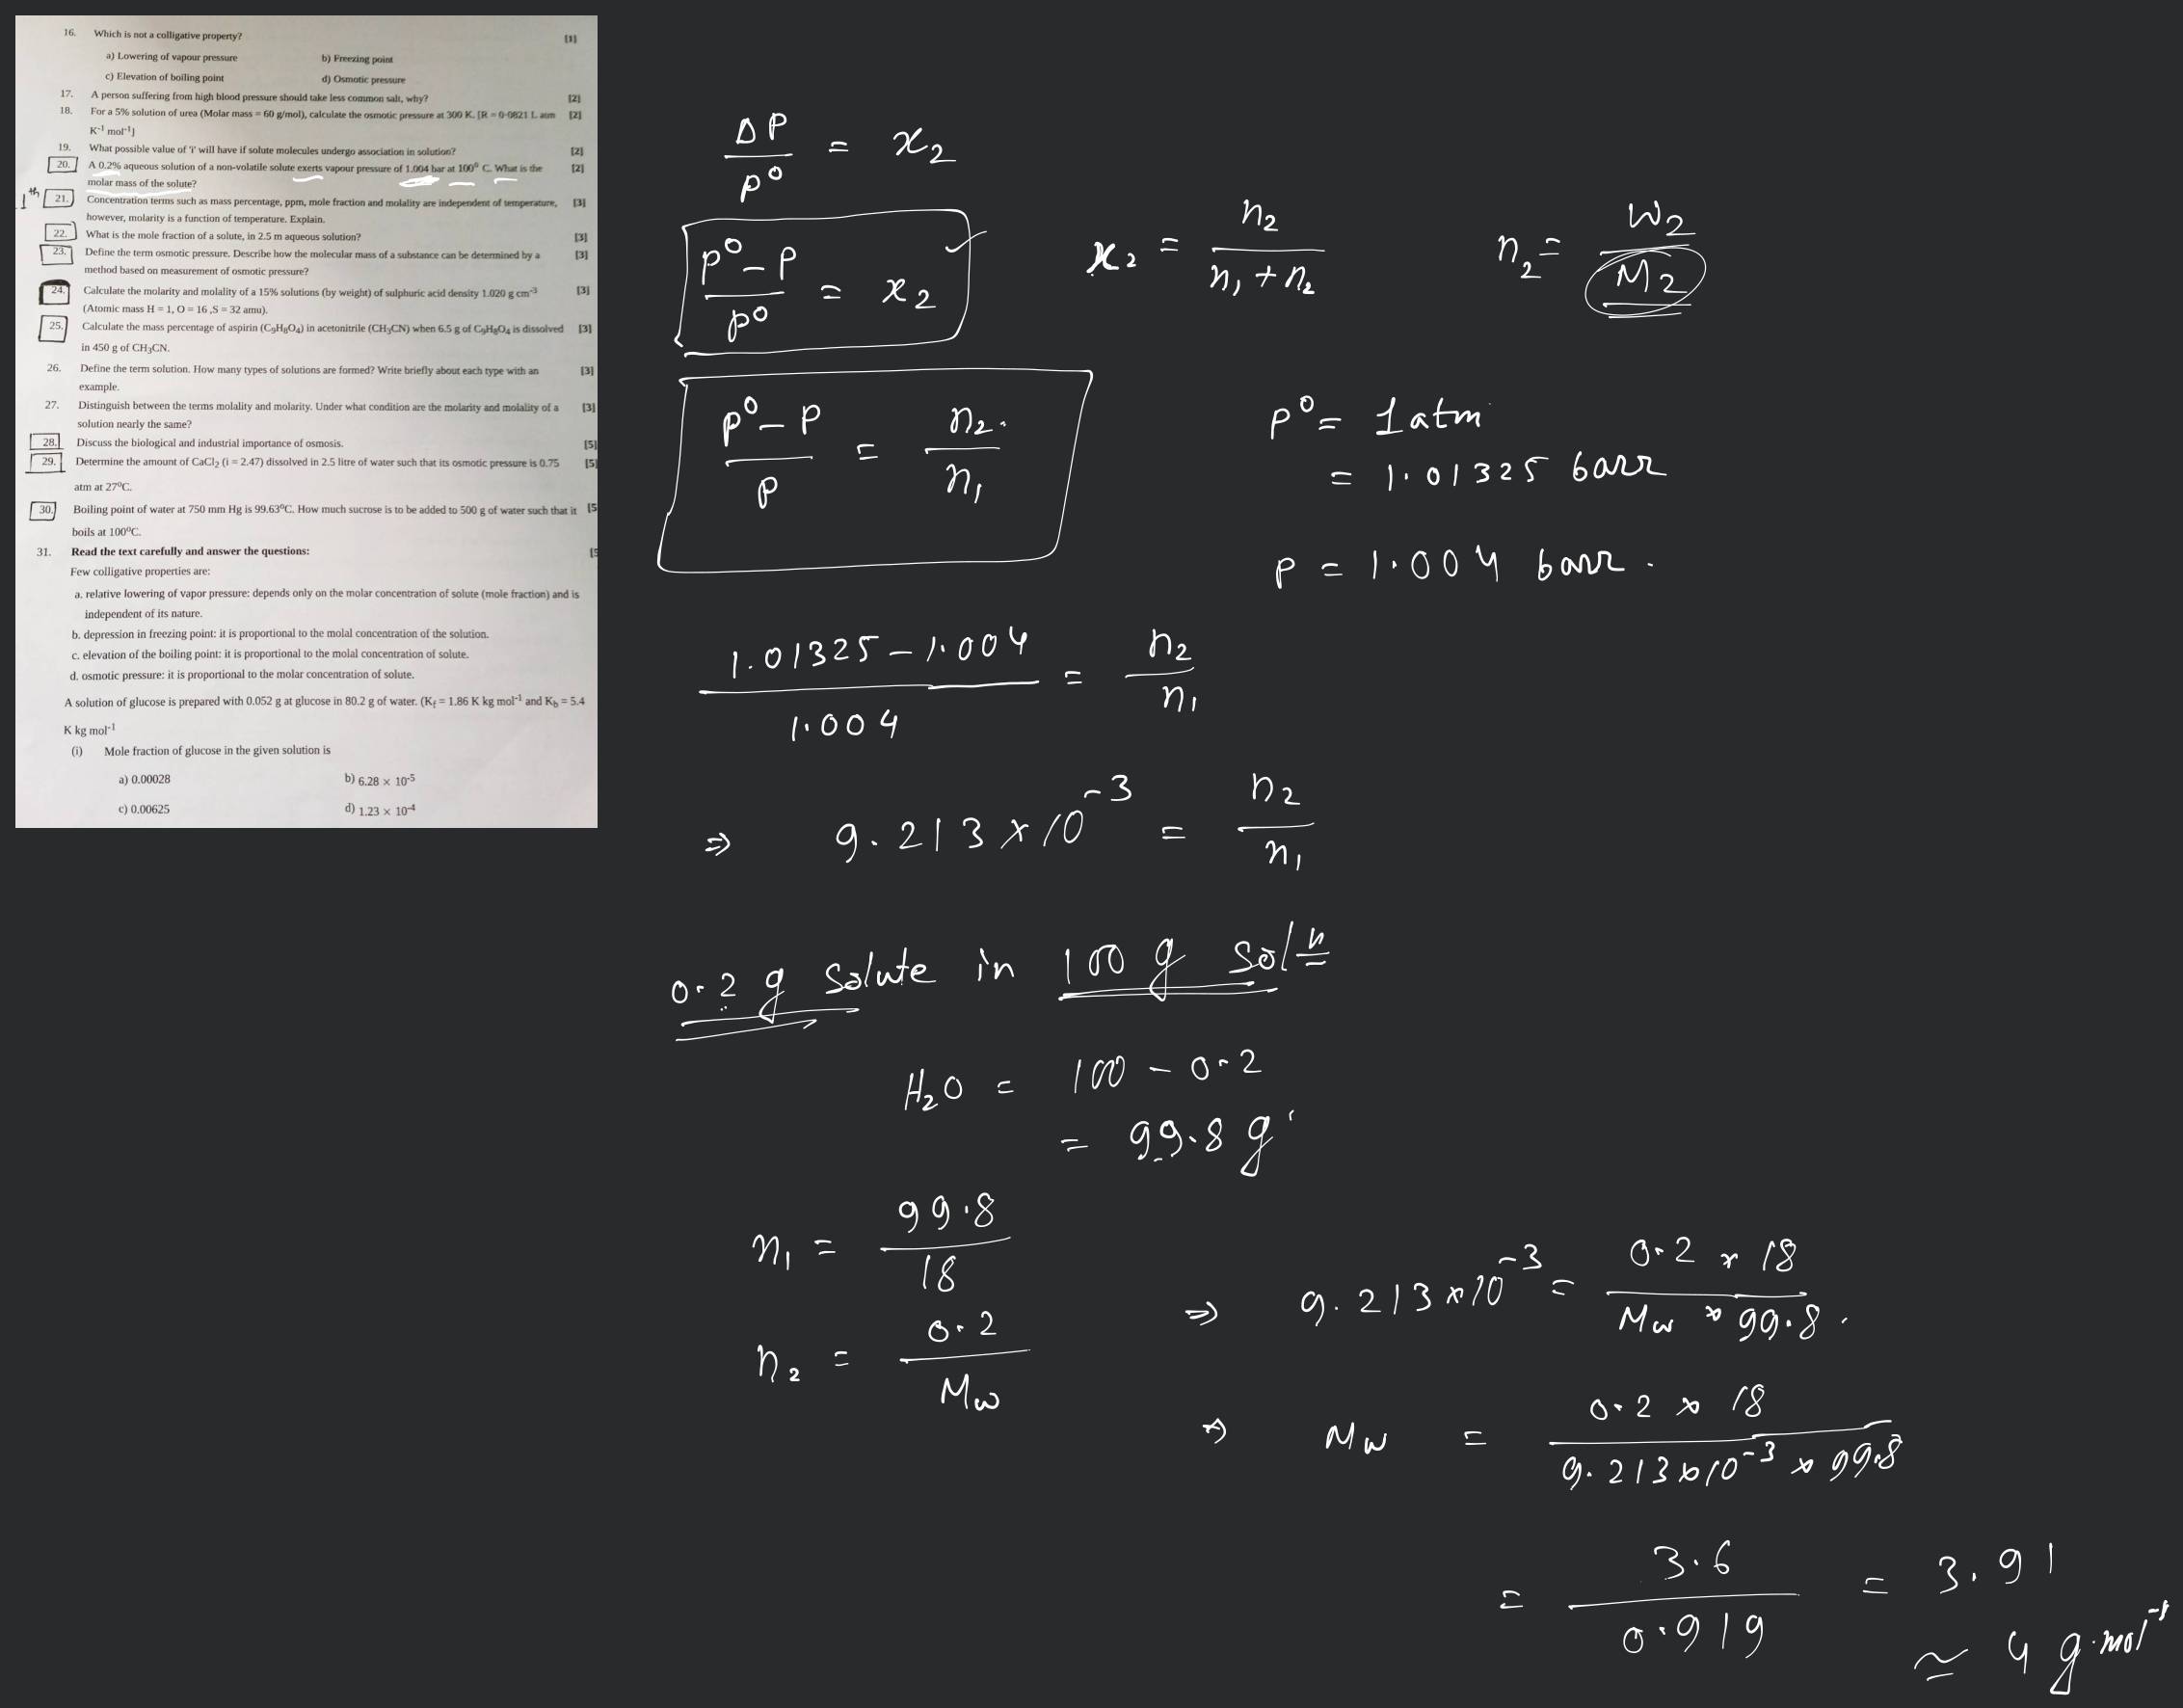 16. Which is not a colligative property? [1]
a) Lowering of vapour pressure b) Freezing point
c) Elevation of boiling point d) Osmotic pressure
17. A person suffering from high blood pressure should take less common salt, why? [2]
18. For a 5% solution of urea (Molar mass = 60 g/mol), calculate the osmotic pressure at 300 K. [R = 0.0821 L atm [2]
K⁻¹ mol⁻¹]
19. What possible value of 'i' will have if solute molecules undergo association in solution? [2]
20. A 0.2% aqueous solution of a non-volatile solute exerts vapour pressure of 1.004 bar at 100⁰ C. What is the [2]
molar mass of the solute?
21. Concentration terms such as mass percentage, ppm, mole fraction and molality are independent of temperature, [3]
however, molarity is a function of temperature. Explain.
22. What is the mole fraction of a solute, in 2.5 m aqueous solution? [3]
23. Define the term osmotic pressure. Describe how the molecular mass of a substance can be determined by a [3]
method based on measurement of osmotic pressure?
24. Calculate the molarity and molality of a 15% solutions (by weight) of sulphuric acid density 1.020 g cm⁻³ [3]
(Atomic mass H = 1, O = 16 ,S = 32 amu).
25. Calculate the mass percentage of aspirin (C₉H₈O₄) in acetonitrile (CH₃CN) when 6.5 g of C₉H₈O₄ is dissolved [3]
in 450 g of CH₃CN.
26. Define the term solution. How many types of solutions are formed? Write briefly about each type with an [3]
example.
27. Distinguish between the terms molality and molarity. Under what condition are the molarity and molality of a [3]
solution nearly the same?
28. Discuss the biological and industrial importance of osmosis. [5]
29. Determine the amount of CaCl₂ (i = 2.47) dissolved in 2.5 litre of water such that its osmotic pressure is 0.75 [5]
atm at 27⁰C.
30. Boiling point of water at 750 mm Hg is 99.63⁰C. How much sucrose is to be added to 500 g of water such that it [5
boils at 100⁰C.
31. Read the text carefully and answer the questions: [5
Few colligative properties are:
a. relative lowering of vapor pressure: depends only on the molar concentration of solute (mole fraction) and is
independent of its nature.
b. depression in freezing point: it is proportional to the molal concentration of the solution.
c. elevation of the boiling point: it is proportional to the molal concentration of solute.
d. osmotic pressure: it is proportional to the molar concentration of solute.
A solution of glucose is prepared with 0.052 g at glucose in 80.2 g of water. (K_f = 1.86 K kg mol⁻¹ and K_b = 5.4
K kg mol⁻¹
(i) Mole fraction of glucose in the given solution is
a) 0.00028 b) 6.28 × 10⁻⁵
c) 0.00625 d) 1.23 × 10⁻⁴
ΔP/P⁰ = x₂
(P⁰ – P)/P⁰ = x₂
x₂ = n₂/(n₁ + n₂)
n₂ = W₂/M₂
(P⁰ – P)/P = n₂/n₁
P⁰ = 1 atm
= 1.01325 barr
P = 1.004 barr.
(1.01325 – 1.004)/1.004 = n₂/n₁
⇒ 9.213 × 10⁻³ = n₂/n₁
0.2 g solute in 100 g solⁿ
H₂O = 100 – 0.2
= 99.8 g
n₁ = 99.8/18
n₂ = 0.2/Mw
⇒ 9.213 × 10⁻³ = (0.2 × 18)/(Mw × 99.8).
⇒ Mw = (0.2 × 18)/(9.213 × 10⁻³ × 99.8)
= 3.6/0.919 = 3.91
≃ 4 g.mol⁻¹